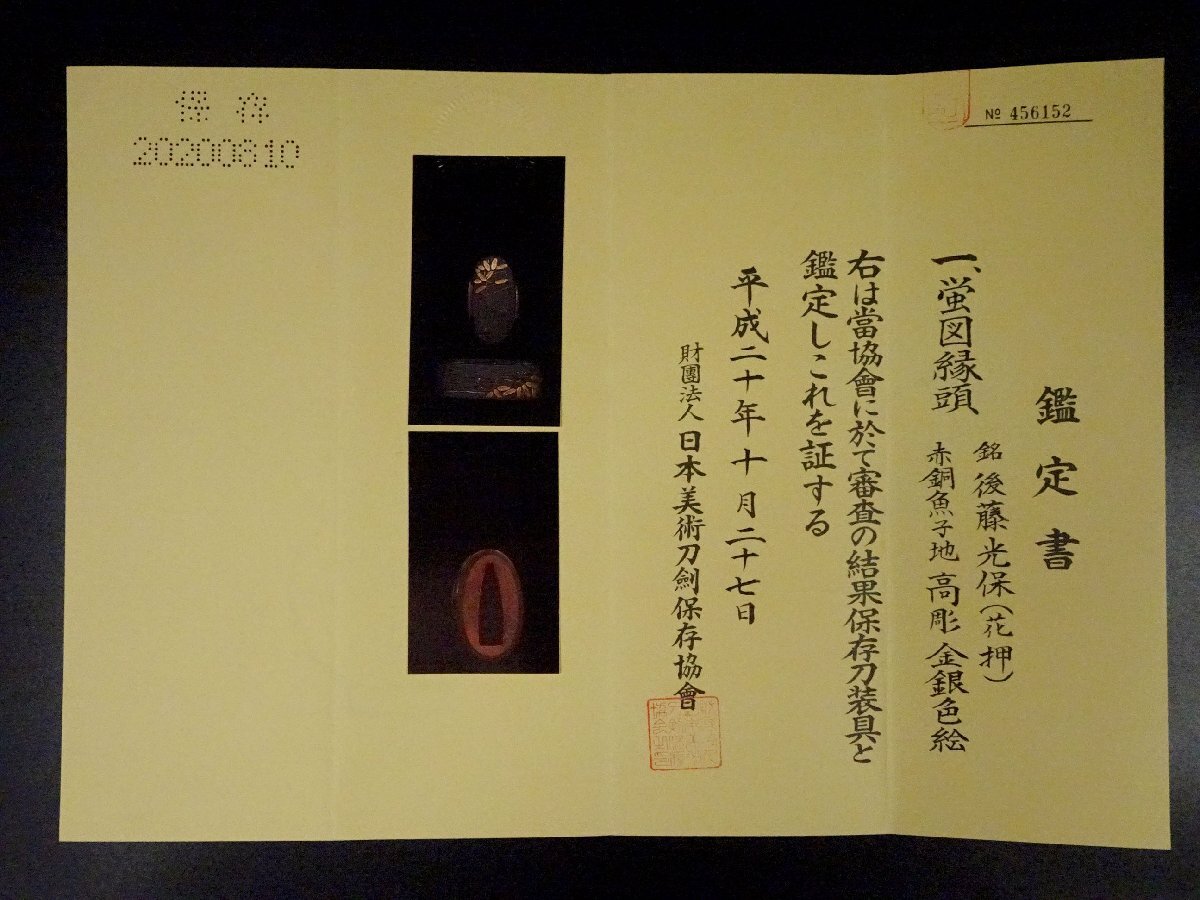 鑑定書
№ 456152
一、蛍図縁頭
銘 後藤光保(花押)
赤銅魚子地 高彫 金銀色絵
右は當協會に於て審査の結果保存刀装具と
鑑定しこれを証する
平成二十年十月二十七日
財團法人 日本美術刀劍保存協會
保存
20200810